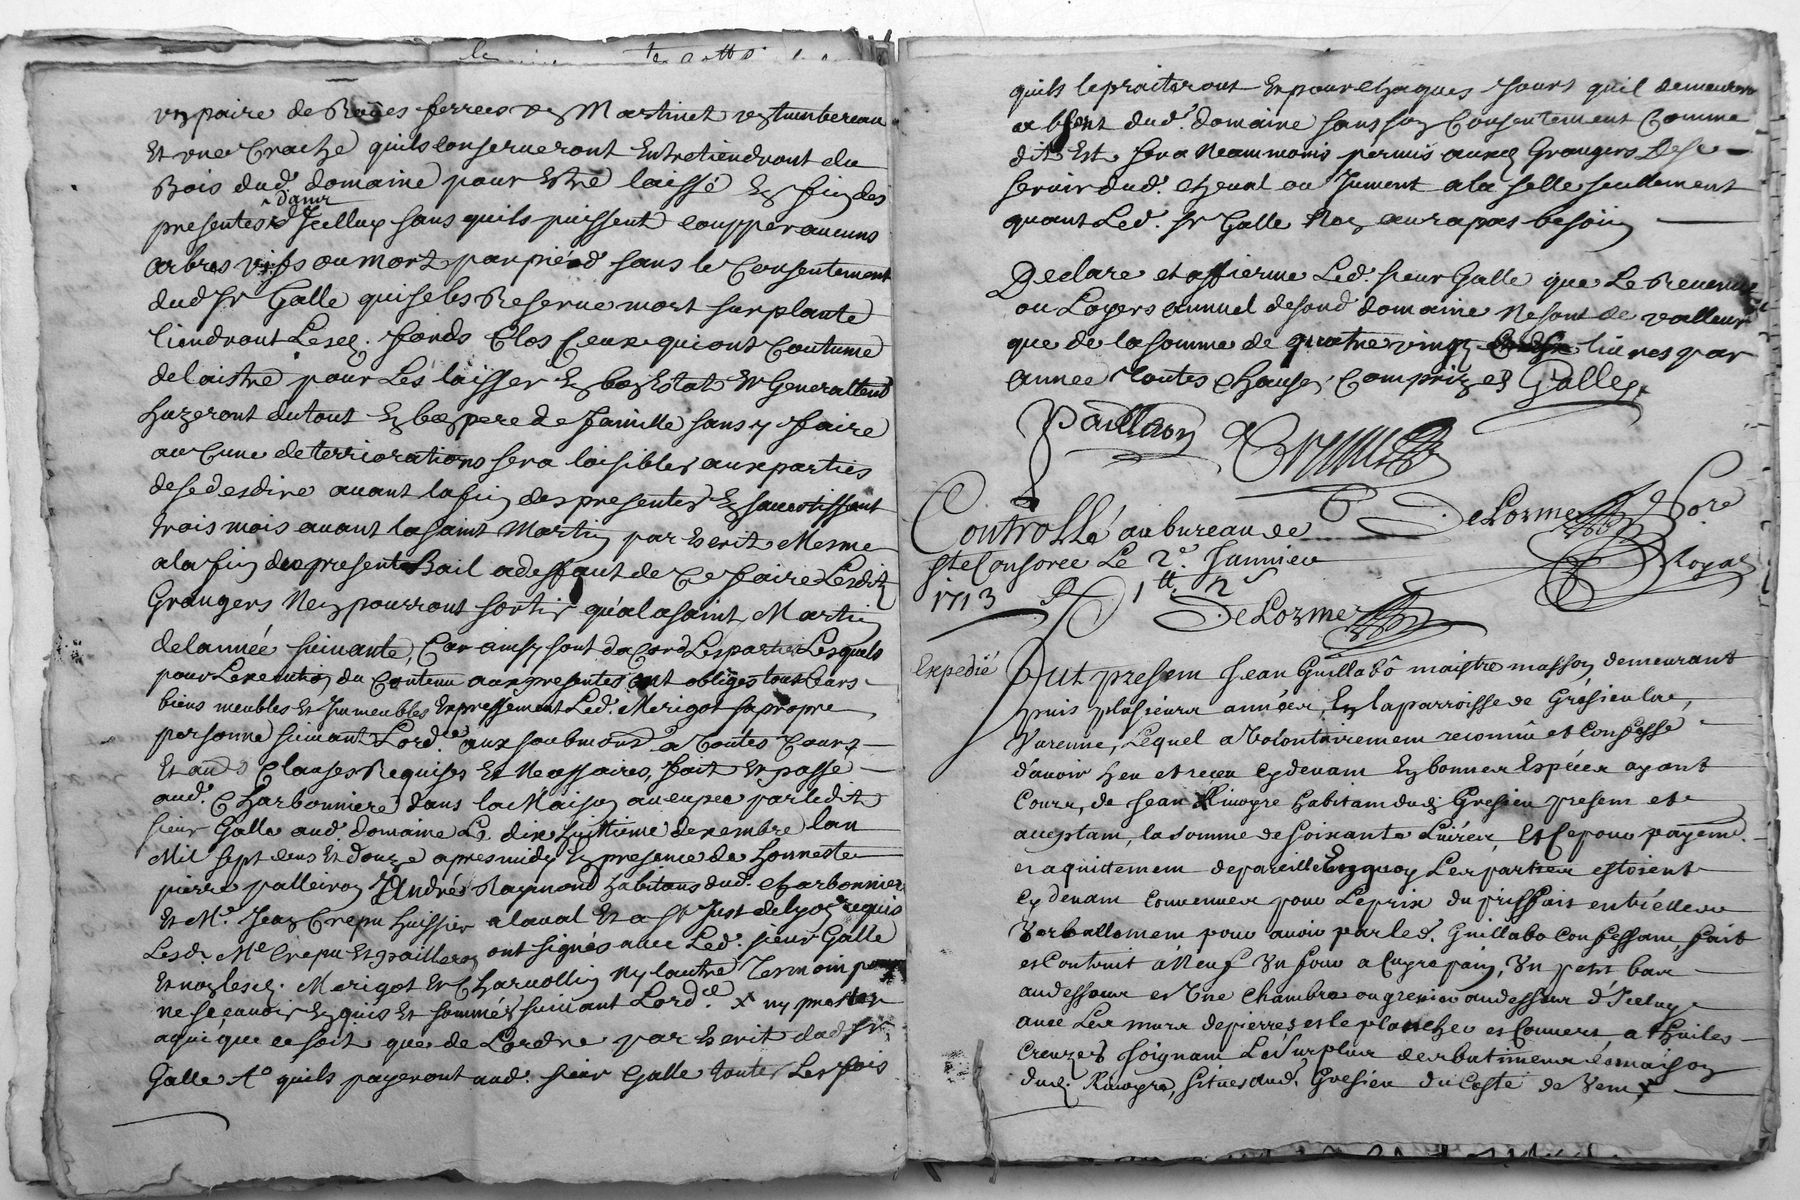 un paire de Roües ferrees un Martinet un tumbereau
et une Crache quils conserueront Entretiendront du
Bois dud. domaine pour Estre laissé En fin des
presentes dans Icelluy sans quils puissent coupper aucuns
arbres vifs ou mort par pied sans le Consentement
dud sr Galle quise les Reserue mort sur plante
tiendront Lesd. fonds Clos Ceux qui ont Coutume
de laistre pour Les laisser En bon Estat Et Generallemt
huzeront du tout En bon pere de famille sans y faire
aucune deterriorations sera loisibles aux parties
de se desdire auant la fin des presentes En sauertissant
trois mois auant la saint Martin par Escrit Mesme
a la fin du present Bail a deffaut de Ce faire Lesdit
Grangers Nen pourront sortir qu'a la saint Martin
de lannée suiuante, Car ainsy sont dacord Les parties Lesquels
pour Lexecution du Contenu aux presentes ont obligés tout leurs
biens meubles Et Immeubles Expressement Led. Merigot sa propre
personne suiuant Lord.ce aux soubmons a toutes Cours
Et aud Clauses Requises Et Necessaires, fait Et passé
aud. Charbonniere dans la Maison occupée par ledit
sieur Galle aud. domaine Le dix huittieme decembre lan
Mil sept cens Et douze apres midy En presence de honneste
pierre palleiron Andrés Raymond habitans dud. Charbonnier
Et Me. Jean Crepu huissier a laual Et a St Just de lyon requis
Lesd. Me Crepu Et pailleron ont signés auec Led. sieur Galle
Et non lesd. Merigot Et Charuollin Ny lautre Tesmoin pour
ne scauoir Enquis Et sommés suiuant Lord.ce x ny prester
a qui que ce soit que de Lordre par Escrit dud sr
Galle Ao quils payeront aud. sieur Galle toutes Les fois
quils le praiteront Et pour Chaques Jours quil demeurera
absent dud. domaine sans son Consentement Comme
dit Est sera Neammoins permis auxd Grangers De se
seruir dud. cheual ou Jument a la selle seullement
quant Led. sr Galle Non aura pas besoin
Declare et affierme Led. sieur Galle que Le Reuenu
ou Loyers annuel desond domaine Ne sont de valleur
que de la somme de quatre vingt liures par
année toutes Choses Comprizes Galle
Paillron
Controllé au bureau de
DeLorme Nore
Ste Consorce Le 2e. Januier
Royal
1713 1tt 2s
DeLorme
Expedié
Fut present Jean Guillabô maistre masson demeurant
puis plusieurs années, En la parroisse de Grésieu la
Varenne, Lequel a volontairement reconnû et Confessé
d'auoir heu et reçeu Cy deuant En bonnes Espéces ayant
Cours, de Jean Riuoyre habitant dud Gresieu present et
acceptant, la somme de soixante Liures, Et Ce pour payemt.
et aquittement de pareille En quoy Les parties estoient
Cy deuant Conuenues pour Le prix du prisfait entre elles
Verballement pour auoir par led. Guillabo Confessant, fait
et Contruit à Neuf Un four a Cuyre pain, Un petit bas
au dessous et Une Chambre ou grenier au dessus d'Iceluy
auec Les murs de pierres et le plancher et Couuert a thuiles
Creuzes Joignant Le Surplus des batiments et maison
dud. Riuoyre, situes aud. Gresieu du Costé de Vent x